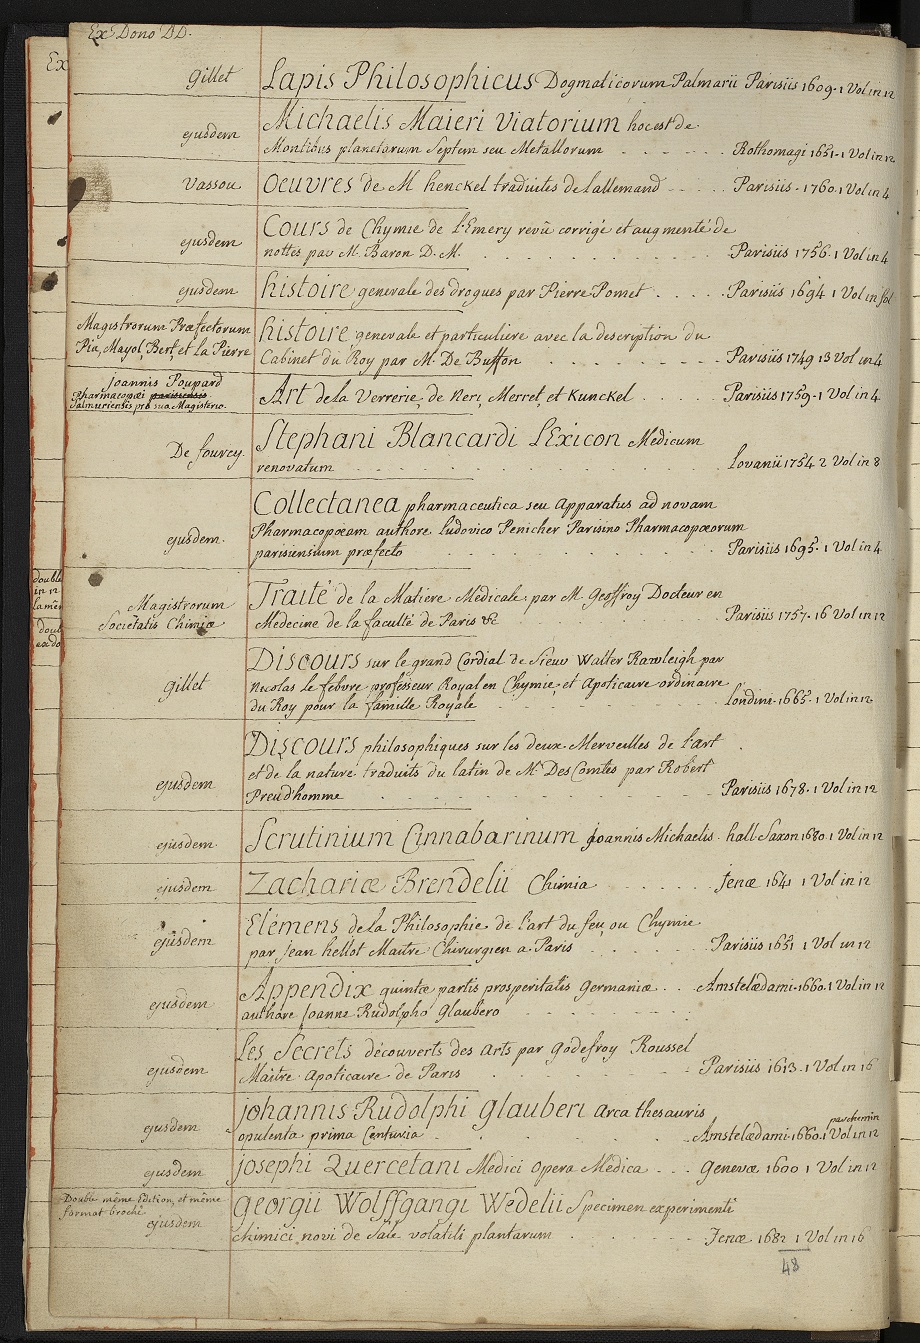 Ex Dono D.D.
Gillet Lapis Philosophicus Dogmaticorum Palmarii Parisiis 1609. 1 Vol in 12
Michaelis Maieri Viatorium hoc est de
ejusdem Montibus planetarum Septem seu Metallorum Rothomagi 1651. 1 Vol in 12
Vassou Oeuvres de M henckel traduites de lallemand Parisiis. 1760. 1 Vol in 4
Cours de Chymie de l'Emery revû corrigé et augmenté de
ejusdem nottes par M. Baron D. M. Parisiis 1756. 1 Vol in 4
ejusdem histoire generale des drogues par Pierre Pomet Parisiis 1694 1 Vol in fol
Magistrorum Præfectorum histoire generale et particuliere avec la description du
Pia, Mayol, Bert, et la Pierre Cabinet du Roy par M. De Buffon Parisiis 1749 13 Vol in 4
Joannis Poupard
Pharmacopæi parisiensis Art de la Verrerie, de Neri, Merret, et Kunckel Parisiis 1759. 1 Vol in 4
Salmuriensis pro sua Magisterio.
Stephani Blancardi LExicon Medicum
De fourcy. renovatum Lovanii 1754 2 Vol in 8
Collectanea pharmaceutica seu Apparatus ad novam
Pharmacopœam authore Ludovico Penicher Parisino Pharmacopœorum
ejusdem. parisiensium præfecto Parisiis 1695. 1 Vol in 4
Magistrorum Traité de la Matiere Médicale par M. Geoffroy Docteur en
Societatis Chimiæ Medecine de la faculté de Paris &c Parisiis 1757. 16 Vol in 12
Discours sur le grand Cordial de Sieur Walter Rawleigh par
Gillet Nicolas le febvre professeur Royal en Chymie, et Apoticaire ordinaire
du Roy pour la famille Royale Londini. 1665. 1 Vol in 12
Discours philosophiques sur les deux Merveilles de l'art
et de la nature traduits du latin de Mr Des Comtes par Robert
ejusdem Preudhomme Parisiis 1678. 1 Vol in 12
ejusdem Scrutinium Cinnabarinum Joannis Michaelis. hall Saxon 1680. 1 Vol in 12
ejusdem Zachariæ Brendelii Chimia Jenæ 1641 1 Vol in 12
Elémens de la Philosophie de l'art du feu ou Chymie
ejusdem par Jean hellot Maitre Chirurgien a Paris Parisiis 1651 1 Vol in 12
ejusdem Appendix quintæ partis prosperitatis Germaniæ Amstelædami. 1660. 1 Vol in 12
authore Joanne Rudolpho Glaubero
Les Secrets découverts des Arts par Godefroy Roussel
ejusdem Maitre Apoticaire de Paris Parisiis 1613. 1 Vol in 16
Johannis Rudolphi Glauberi Arca thesauris
parchemin
ejusdem opulenta prima Centuria Amstelædami. 1660. 1 Vol in 12
ejusdem Josephi Quercetani Medici Opera Medica Genevæ 1600 1 Vol in 12
Double même Edition, et même Georgii Wolffgangi Wedelii Specimen experimenti
format broché
ejusdem chimici novi de Sale volatili plantarum Jenæ 1682 1 Vol in 16
48
Ex
double
in 12